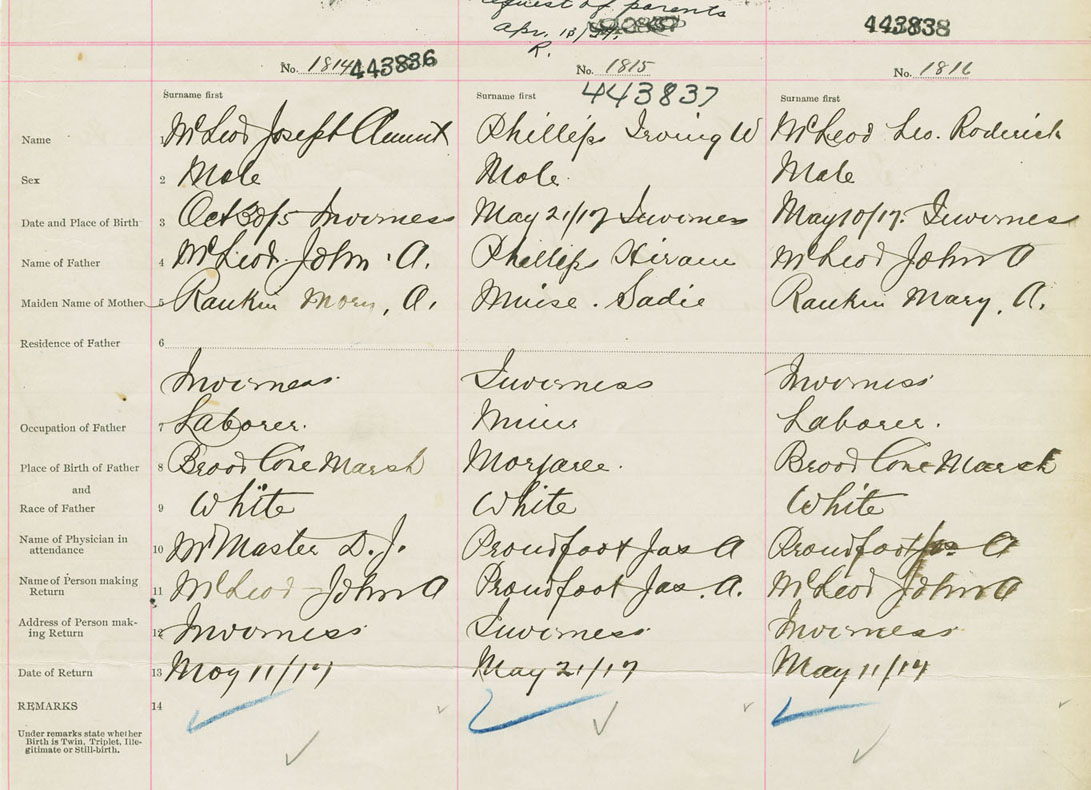 request of parents
Apr. 18/39.
R.
443838
No. 1814 443836
No. 1815
No. 1816
443837
Surname first
Surname first
Surname first
Name 1 McLeod Joseph Phillips Irving W McLeod Leo. Roderick
Sex 2 Male Male. Male
Date and Place of Birth 3 Oct 30/15 Inverness May 21/17 Inverness May 10/17. Inverness
Name of Father 4 McLeod. John. A. Phillips Hiram McLeod John A
Maiden Name of Mother 5 Rankin Mary, A. Muise. Sadie Rankin Mary, A.
Residence of Father 6
Inverness Inverness Inverness
Occupation of Father 7 Laborer. Miner Laborer.
Place of Birth of Father 8 Broad Cove Marsh Margaree. Broad Cove Marsh
and
Race of Father 9 White White White
Name of Physician in
attendance 10 McMaster D. J. Proudfoot Jas A Proudfoot Jas A
Name of Person making
Return 11 McLeod John A Proudfoot Jas. A. McLeod John A
Address of Person mak-
ing Return 12 Inverness Inverness Inverness
Date of Return 13 May 11/17 May 21/17 May 11/17
REMARKS 14
Under remarks state whether
Birth is Twin, Triplet, Ille-
gitimate or Still-birth.